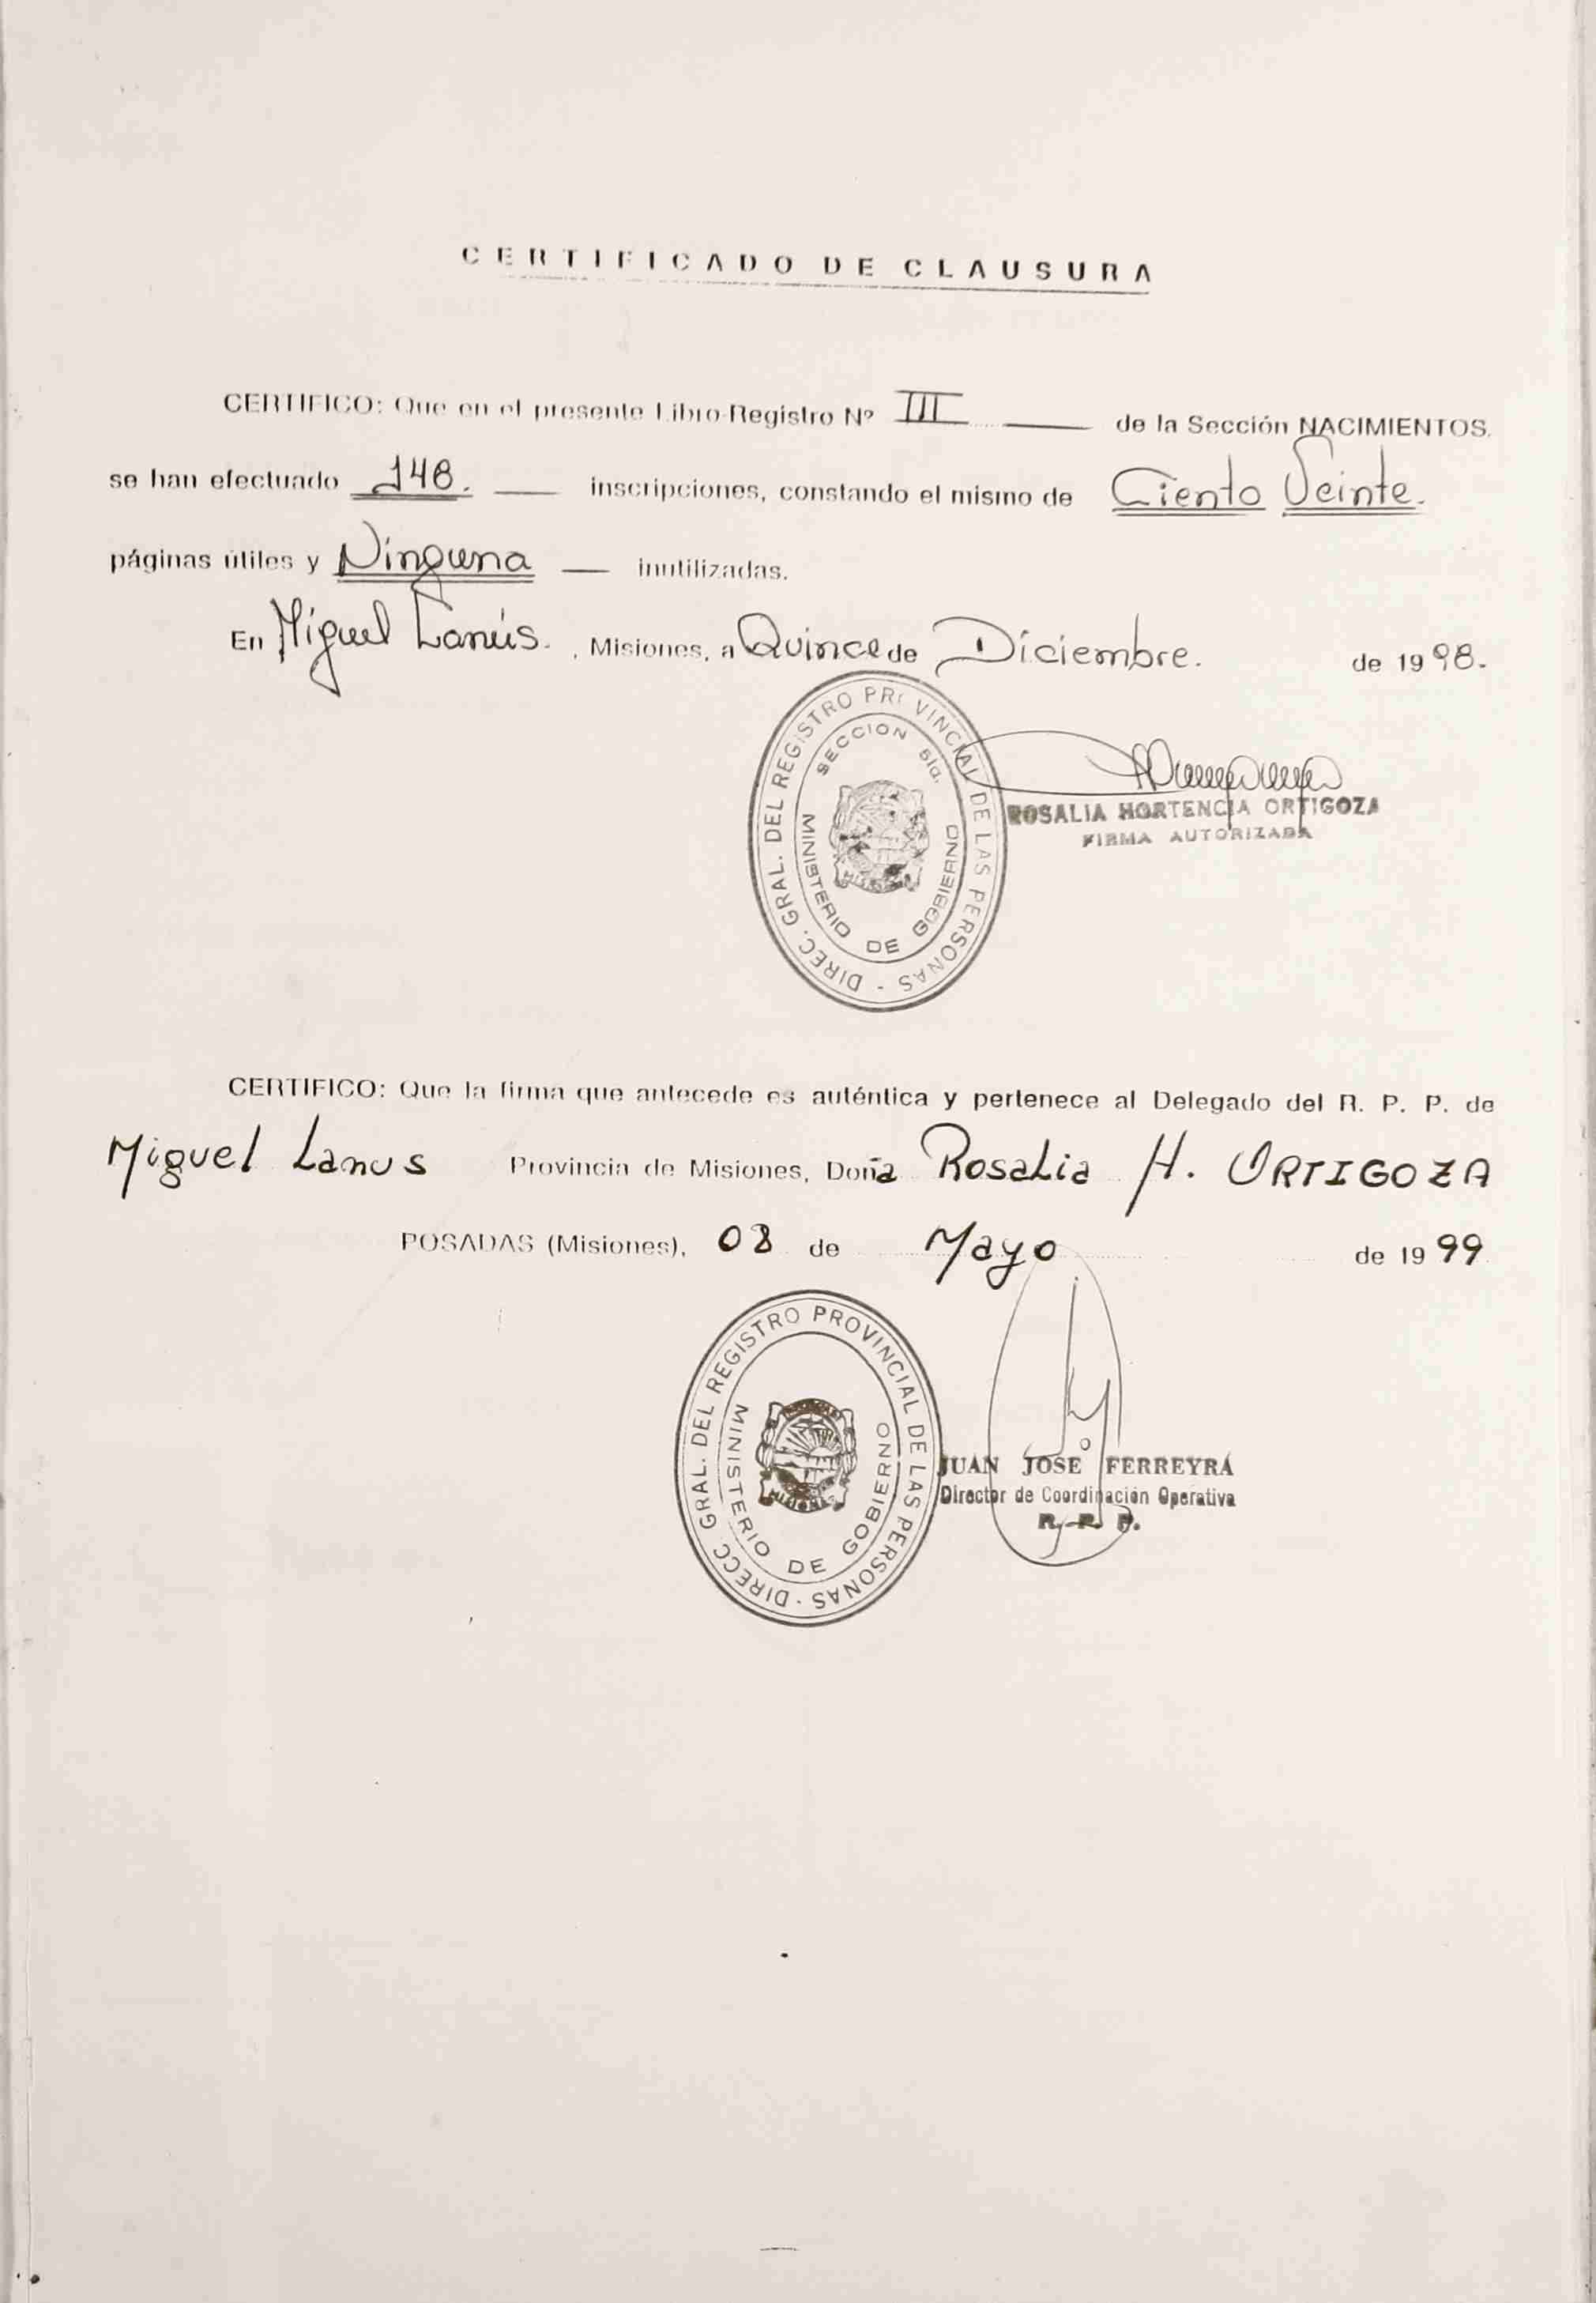 CERTIFICADO DE CLAUSURA
CERTIFICO: Que en el presente Libro-Registro Nº III de la Sección NACIMIENTOS.
se han efectuado 148. inscripciones, constando el mismo de Ciento Veinte.
páginas útiles y Ninguna inutilizadas.
En Miguel Lanús. , Misiones, a Quince de Diciembre. de 1998.
DIREC. GRAL. DEL REGISTRO PROVINCIAL DE LAS PERSONAS -
SECCION 5ta.
MINISTERIO DE GOBIERNO
ROSALIA HORTENCIA ORTIGOZA
FIRMA AUTORIZADA
CERTIFICO: Que la firma que antecede es auténtica y pertenece al Delegado del R. P. P. de
Miguel Lanus Provincia de Misiones, Doña Rosalia H. ORTIGOZA
POSADAS (Misiones), 03 de Mayo de 1999
DIRECC. GRAL. DEL REGISTRO PROVINCIAL DE LAS PERSONAS -
MINISTERIO DE GOBIERNO
MISIONES
JUAN JOSE FERREYRA
Director de Coordinación Operativa
R. P. P.